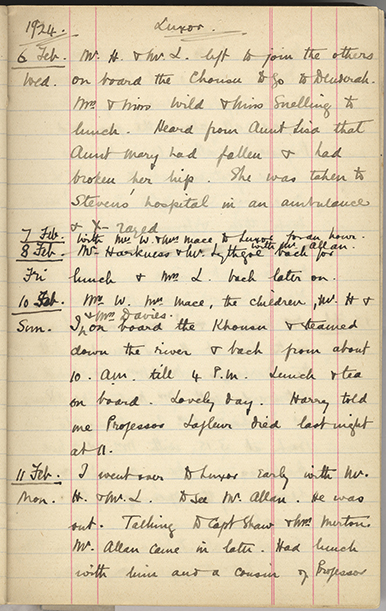 1924. Luxor.
6 Feb. Mr. H. & Mr. L. left to join the others
Wed. on board the Chonsu to go to Denderah.
Mrs & Miss Wild & Miss Snelling to
lunch. Heard from Aunt Lisa that
Aunt Mary had fallen & had
broken her hip. She was taken to
Stevens' hospital in an ambulance
& X-rayed
7 Feb. With Mrs W. & Mrs Mace to Luxor for an hour.
with Mr. Allan.
8 Feb. Mr. Harkness & Mr. Lythgoe back for
Fri lunch & Mrs L. back later on.
10 Feb. Mrs W. Mrs Mace, the children, Mr. H &
& Mrs Davies.
Sun. I, on board the Khonsu & steamed
down the river & back from about
10. A.m. till 4 P.M. Lunch & tea
on board. Lovely day. Harry told
me Professor Lafleur died last night
at 11.
11 Feb. I went over to Luxor early with Mr.
Mon. H. & Mr. L. to see Mr. Allan. He was
out. Talking to Capt Shaw & Mrs Merton
Mr. Allan came in later. Had lunch
with him and a cousin of Professor